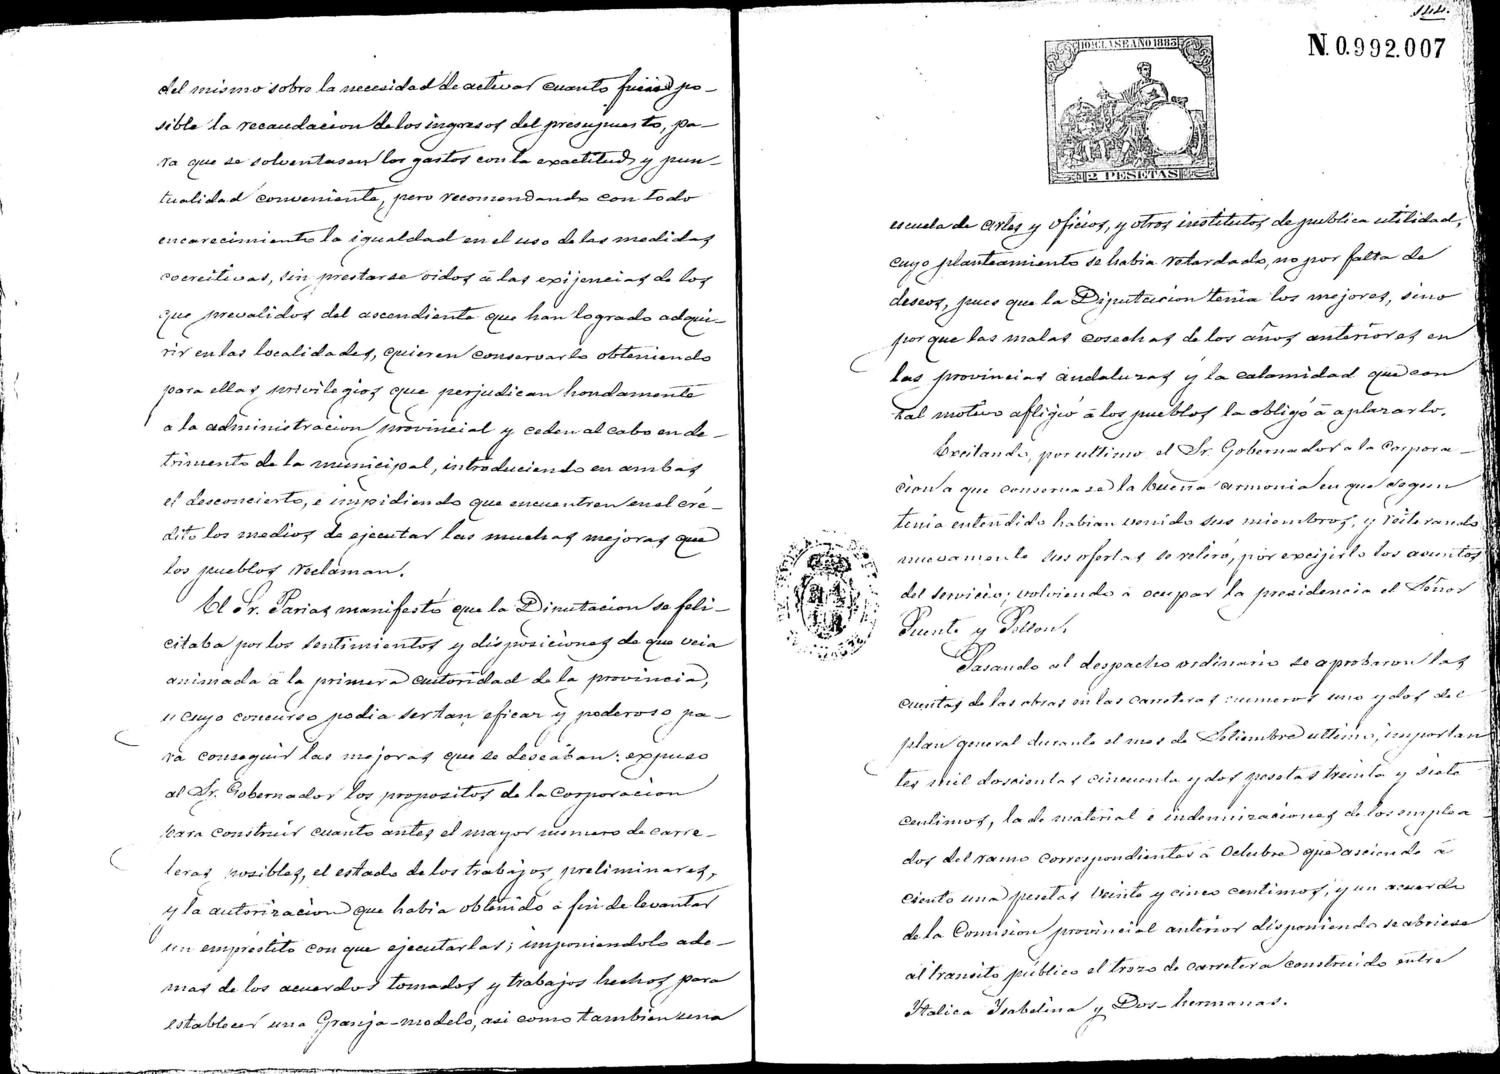 del mismo sobre la necesidad de activar cuanto fuese po-
sible la recaudacion de los ingresos del presupuesto, pa-
ra que se solventasen los gastos con la exactitud y pun-
tualidad conveniente, pero recomendando con todo
encarecimiento la igualdad en el uso de las medidas
coercitivas, sin prestarse oidos á las exijencias de los
que prevalidos del ascendiente que han logrado adqui-
rir en las localidades, quieren conservarlo obteniendo
para ellas privilegios que perjudican hondamente
á la administracion provincial y ceden al cabo en de-
trimento de la municipal, introduciendo en ambas
el desconcierto, é impidiendo que encuentren en el cré-
dito los medios de ejecutar las muchas mejoras que
los pueblos reclaman.
El Sr. Parias manifestó que la Diputacion se feli-
citaba por los sentimientos y disposiciones de que veia
animada á la primera autoridad de la provincia,
cuyo concurso podia ser tan eficaz y poderoso pa-
ra conseguir las mejoras que se deseaban: expuso
al Sr. Gobernador los propositos de la Corporacion
para construir cuanto antes el mayor numero de carre-
teras posibles, el estado de los trabajos preliminares,
y la autorizacion que habia obtenido á fin de levantar
un empréstito con que ejecutarlas; imponiendolo ade-
mas de los acuerdos tomados y trabajos hechos para
establecer una Granja-modelo, asi como tambien una
144.
10ª CLASE AÑO 1883
N.0.992.007
2 PESETAS
escuela de artes y oficios, y otros institutos de publica utilidad,
cuyo planteamiento se habia retardado, no por falta de
deseos, pues que la Diputacion tenia los mejores, sino
porque las malas cosechas de los años anteriores en
las provincias andaluzas y la calamidad que con
tal motivo afligió á los pueblos, la obligó á aplazarlo.
Excitando, por ultimo el Sr. Gobernador a la Corpora-
cion a que conservase la buena armonia en que segun
tenia entendido habian venido sus miembros, y reiterando
nuevamente sus ofertas se retiró, por excijirlo los asuntos
del servicio; volviendo á ocupar la presidencia el Señor
Puente y Pellon.
Pasando al despacho ordinario se aprobaron las
cuentas de las obras en las carreteras numeros uno y dos del
plan general durante el mes de Setiembre ultimo, importan
tes mil doscientas cincuenta y dos pesetas treinta y siete
centimos, la de material é indemnizaciones de los emplea-
dos del ramo correspondientes á Octubre que asciende á
ciento una pesetas veinte y cinco centimos, y un acuerdo
de la Comision provincial anterior disponiendo se abriese
al transito público el trozo de carretera construido entre
Italica Isabelina y Dos-hermanas.